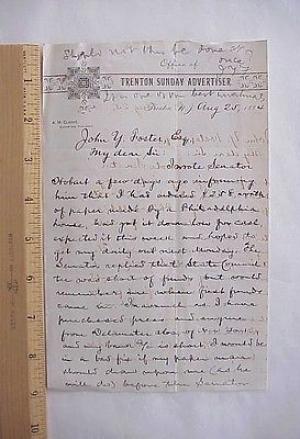 Should not this be done at
once
J.Y.F.
Office of
TRENTON SUNDAY ADVERTISER
Trenton, N.J. Aug 25, 188
John Y. Foster, Esq.
My dear Sir
I wrote Senator
Hobart a few days ago informing
him that I had ordered $258 worth
of paper made by a Philadelphia
house, had got it down low for cash,
expected it this week and hoped to
get my daily out next Monday. The
Senator replied that State Council
was short of funds but would
when first funds
came in. Inasmuch as I have
purchased press and engine
from Delamater also, of New York
and my bank is short, I would be
in a bad fix if my paper man
should draw upon me (as he
will do) before the Senator